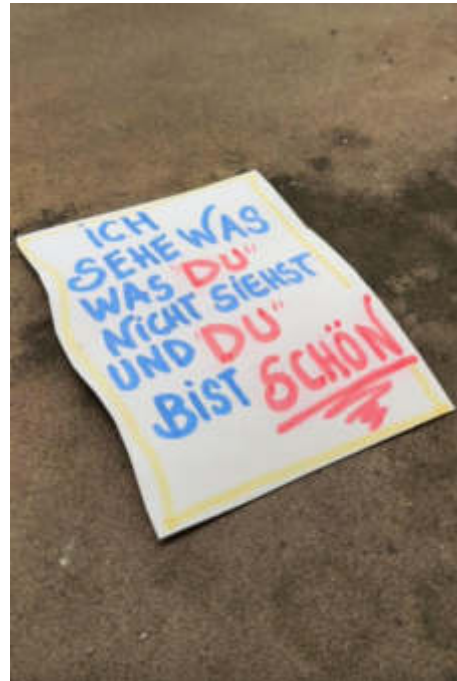 iCH
SEHE WAS
WAS "DU"
NiCHT SiEHST
UND "DU"
BiST SCHÖN